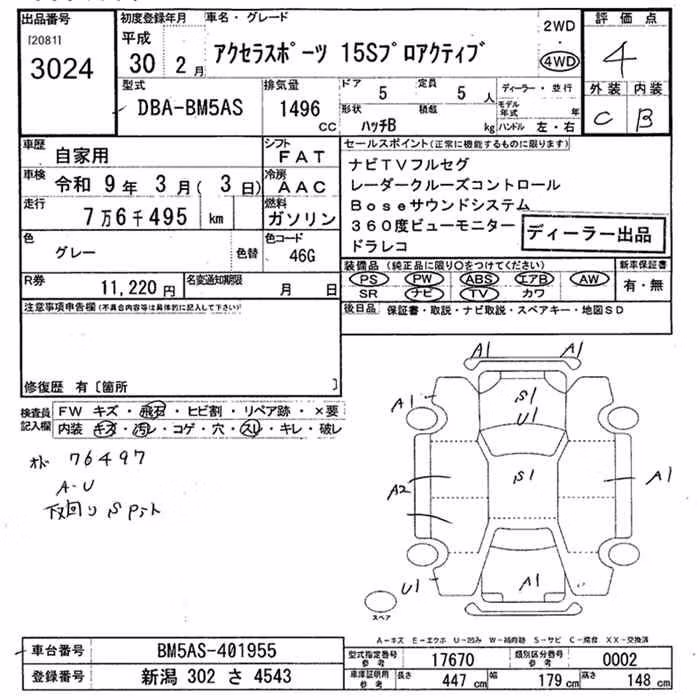 出品番号 初度登録年月 車名・グレード 2WD 評価点
[2081] 平成
3024 30 2月 アクセラスポーツ 15Sプロアクティブ 4WD 4
型式 排気量 ドア 定員 ディーラー・並行 外装 内装
DBA-BM5AS 1496 cc 5 5人 モデル年式 年 C B
形状 ハッチB 積載 kg ハンドル 左・右
車歴 自家用 シフト FAT セールスポイント(正常に機能するものに限ります)
車検 令和 9年 3月(3日) 冷房 AAC ナビTVフルセグ
レーダークルーズコントロール
走行 7万6千495 km 燃料 ガソリン Boseサウンドシステム
360度ビューモニター
ドラレコ
ディーラー出品
色 グレー 色替 色コード 46G
R券 11,220円 名変通知期限 月 日
装備品(純正品に限り○をつけてください) 新車保証書
PS PW ABS エアB AW 有・無
SR ナビ TV カワ
注意事項申告欄(不具合内容等は具体的に記入して下さい)
後日品 保証書・取説・ナビ取説・スペアキー・地図SD
修復歴 有〔箇所 〕
検査員記入欄 FW キズ・飛石・ヒビ割・リペア跡・×要
内装 キズ・汚レ・コゲ・穴・スレ・キレ・破レ
オド 76497
A-U
下回りSアト
A1 A1
A1 S1
U1
S1
A2 A1
U1 A1
スペア
A-キズ E-エクボ U-凹み W-補修跡 S-サビ C-腐食 XX-交換済
車台番号 BM5AS-401955 型式指定番号 参考 17670 類別区分番号 参考 0002
登録番号 新潟 302 さ 4543 車庫証明用 参考 長さ 447 cm 幅 179 cm 高さ 148 cm